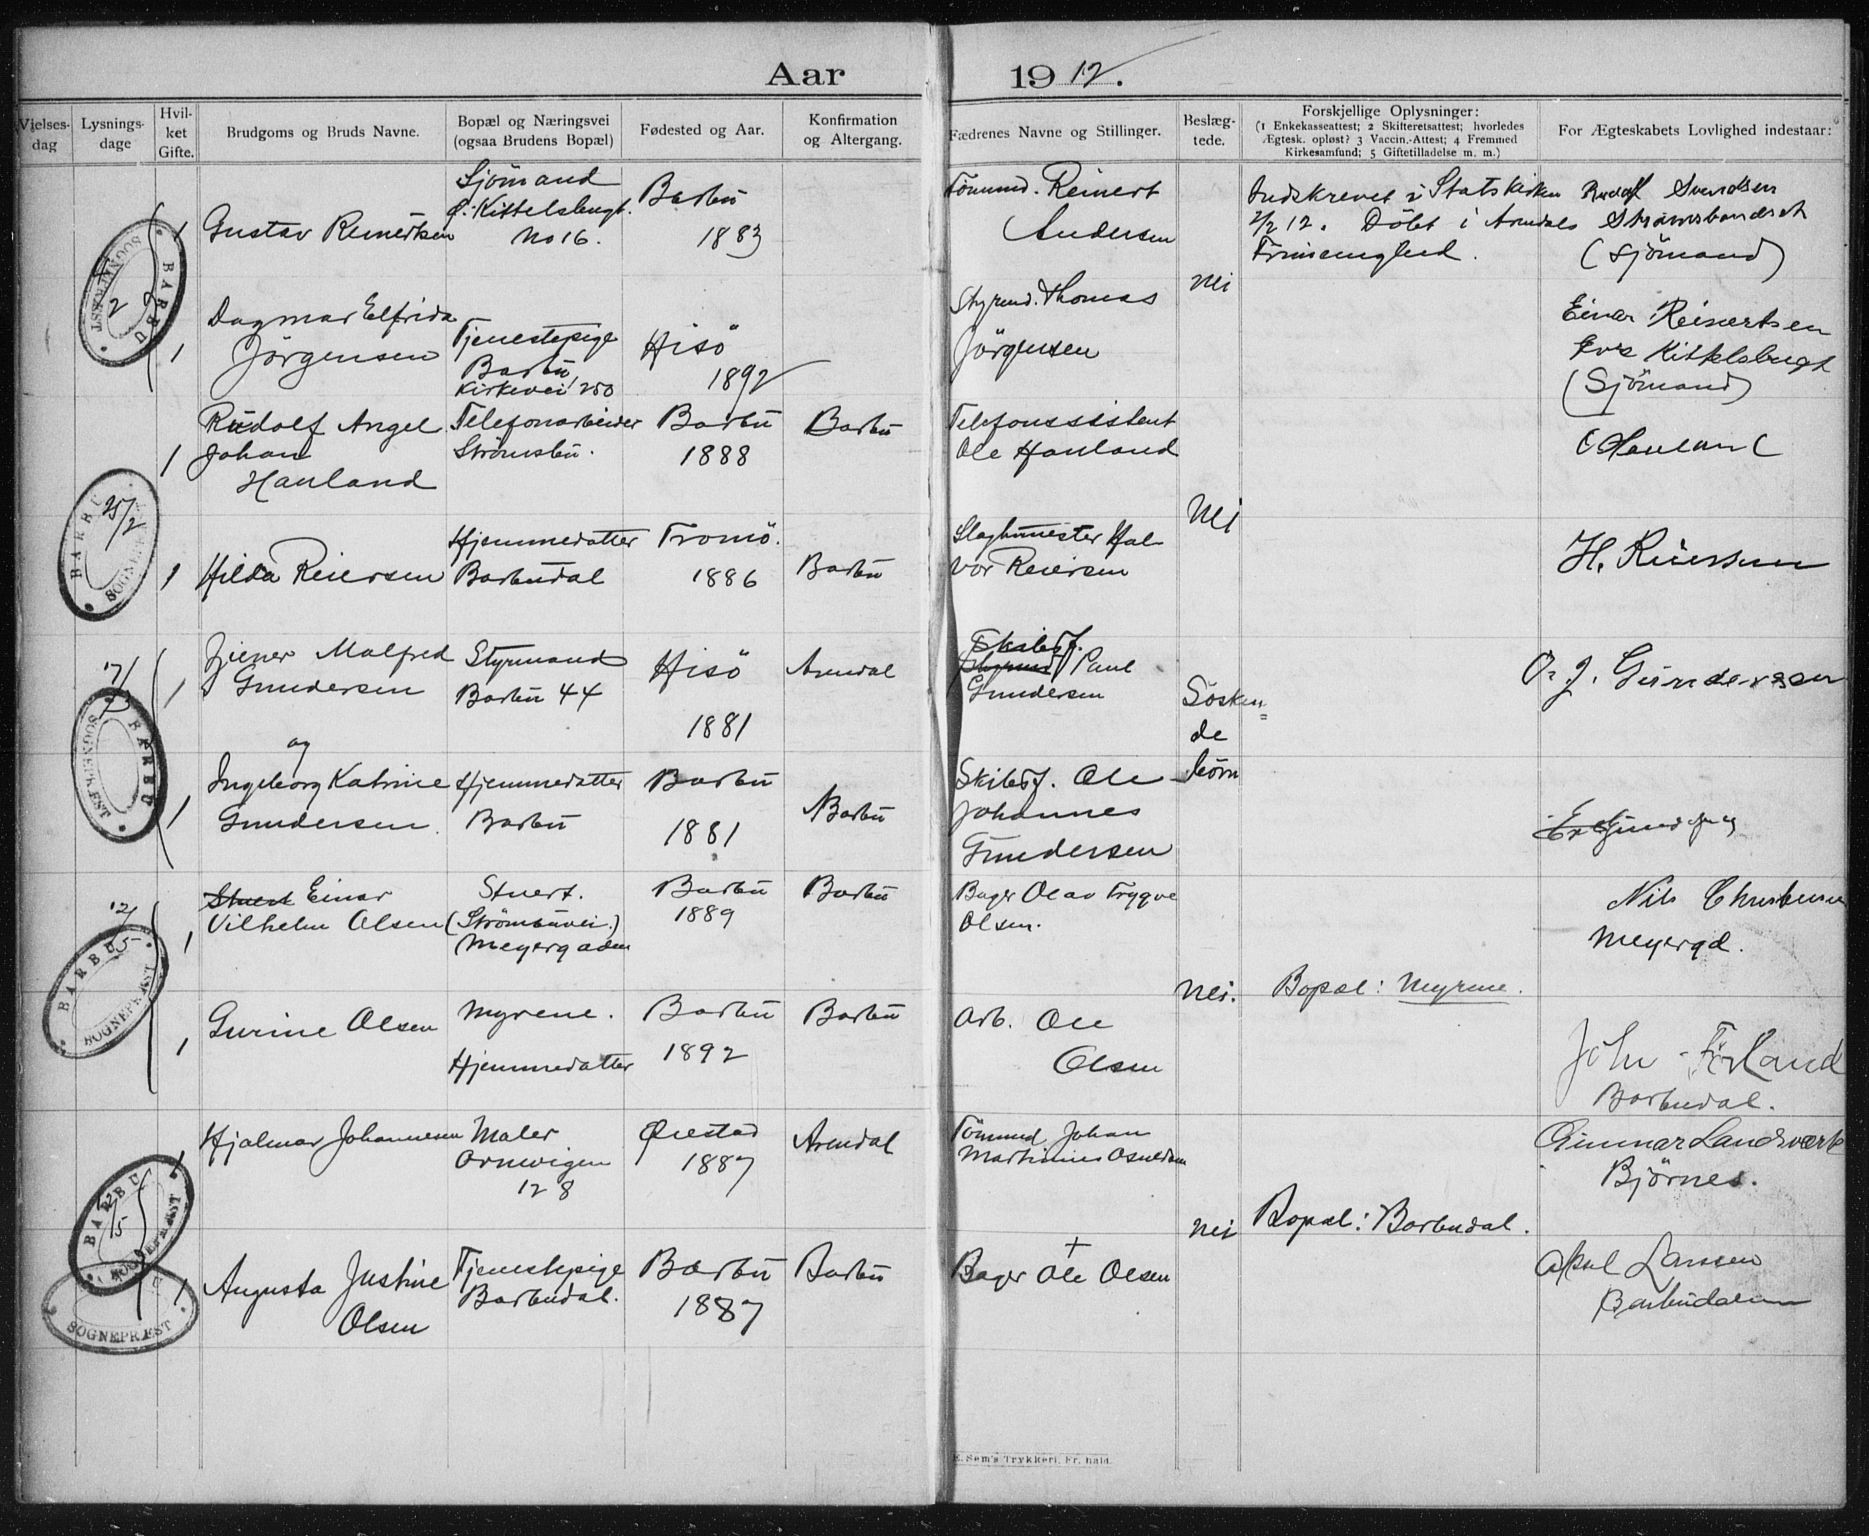 Aar 1912.
Vielses-dag
Lysnings-dage
Hvil-ket Gifte.
Brudgoms og Bruds Navne.
Bopæl og Næringsvei
(ogsaa Brudens Bopæl)
Fødested og Aar.
Konfirmation
og Altergang.
Fædrenes Navne og Stillinger.
Beslæg-tede.
Forskjellige Oplysninger:
(1 Enkekasseattest; 2 Skifteretsattest; hvorledes
Ægtesk. opløst? 3 Vaccin.-Attest; 4 Fremmed
Kirkesamfund; 5 Giftetilladelse m. m.)
For Ægteskabets Lovlighed indestaar:
BARBU SOGNEPRÆST
1
Gustav Reinertsen
Sjömand
Kittelsbugt.
No 16.
Barbu
1883
Tömmd. Reinert
Andersen
Indskrevet i Statskirken
2/2 12. Döbt i Arendals
Frimenighed.
Rudolf Svendsen
Strømsbunæset
(Sjömand)
Nei
1
Dagmar Elfrida
Jörgensen
Tjenestepige
Barbu
Kirkevei 250
Hisö
1892
Styrmd. Thomas
Jörgensen
Einar Reinertsen
Kittelsbugt
(Sjömand)
BARBU SOGNEPRÆST
25/2
1
Rudolf Angel
Johan
Hauland
Telefonarbeider
Strömsbu.
Barbu
1888
Barbu
Telefonassistent
Ole Hauland
O Hauland
Nei
1
Hilda Reiersen
Hjemmedatter
Barbudal
Tromö.
1886
Barbu
Slagtmester Hal-
vor Reiersen
H. Reiersen
17/3
BARBU SOGNEPRÆST
1
Malfred
Gundersen
Styrmand
Barbu 44
Hisö
1881
Arendal
Skibsf.
Styrmd Paul
Gundersen
Sösken=
de
börn
O. J. Gundersen
og
1
Ingeborg Katrine
Gundersen.
Hjemmedatter
Barbu
Barbu
1881
Barbu
Skibsf. Ole
Johannes
Gundersen
12/5
BARBU SOGNEPRÆST
1
Stuert Einar
Vilhelm Olsen
Stuert.
(Strömbuvei.)
Meyergaden
Barbu
1889
Barbu
Bager Olav Trygve
Olsen.
Nils Christensen
Meyergd.
Nei.
Bopæl: Myrene.
1
Gurine Olsen
Myrene.
Hjemmedatter
Barbu
1892
Barbu
Arb. Ole
Olsen
John Förland
Barbudal.
BARBU SOGNEPRÆST
1
Hjalmar Johannesen
Maler
Ornevigen
128
Øiestad
1887
Arendal
Tömmd Johan
Martinius
Gunnar Landsverk
Bjørnes.
Nei
Bopæl: Barbudal.
SOGNEPRÆST
1
Augusta Justine
Olsen
Tjenestepige
Barbudal.
Barbu
1887
Barbu
+
Bager Ole Olsen
Aksel Larssen
Barbudalen
E. Sem's Trykkeri, Fr. hald.